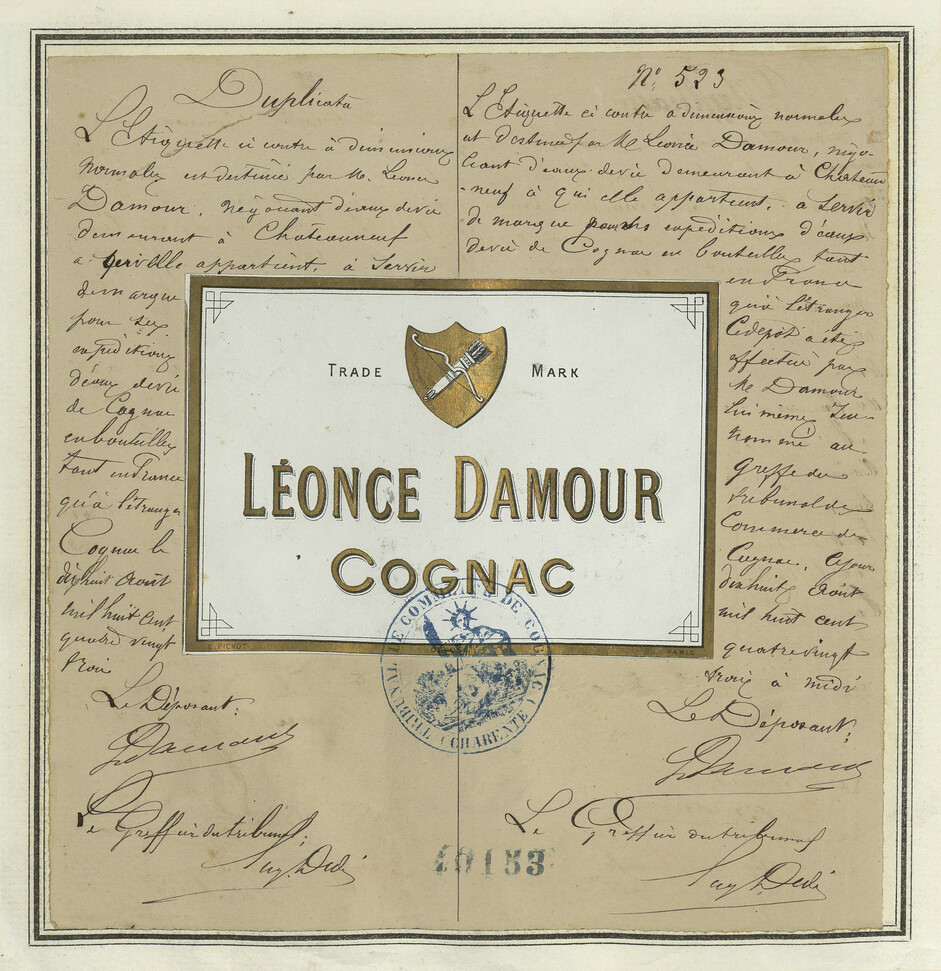 Duplicata
L'Etiquette ci contre à dimensions
normales est destinée par M. Léonce
Damour, négociant d'eaux de vie
demeurant à Chateauneuf
a qui elle appartient, à servir
de marque
pour ses
expéditions
d'eaux de vie
de Cognac
en bouteilles
tant en France
qu'à l'étranger
Cognac le
dix huit Août
mil huit cent
quatre vingt
trois
Le Déposant:
Damour
Le Greffier du tribunal:
N° 523
L'Etiquette ci contre a dimensions normales
est destinée par M. Léonce Damour, négo-
ciant d'eaux de vie demeurant à Chateau
-neuf à qui elle appartient, à servir
de marque pour ses expéditions d'eaux
de vie de Cognac en bouteilles tant
en France
qu'à l'étranger
Ce dépot a été
effectué par
M. Damour
lui même Sus-
nommé au
greffe du
tribunal de
Commerce de
Cognac, ce jour
dix huit Août
mil huit cent
quatre vingt
trois à midi
Le Déposant:
Damour
Le Greffier du tribunal
TRADE MARK
LÉONCE DAMOUR
COGNAC
E. PICHOT PARIS
TRIBUNAL DE COMMERCE DE COGNAC (CHARENTE)
40153